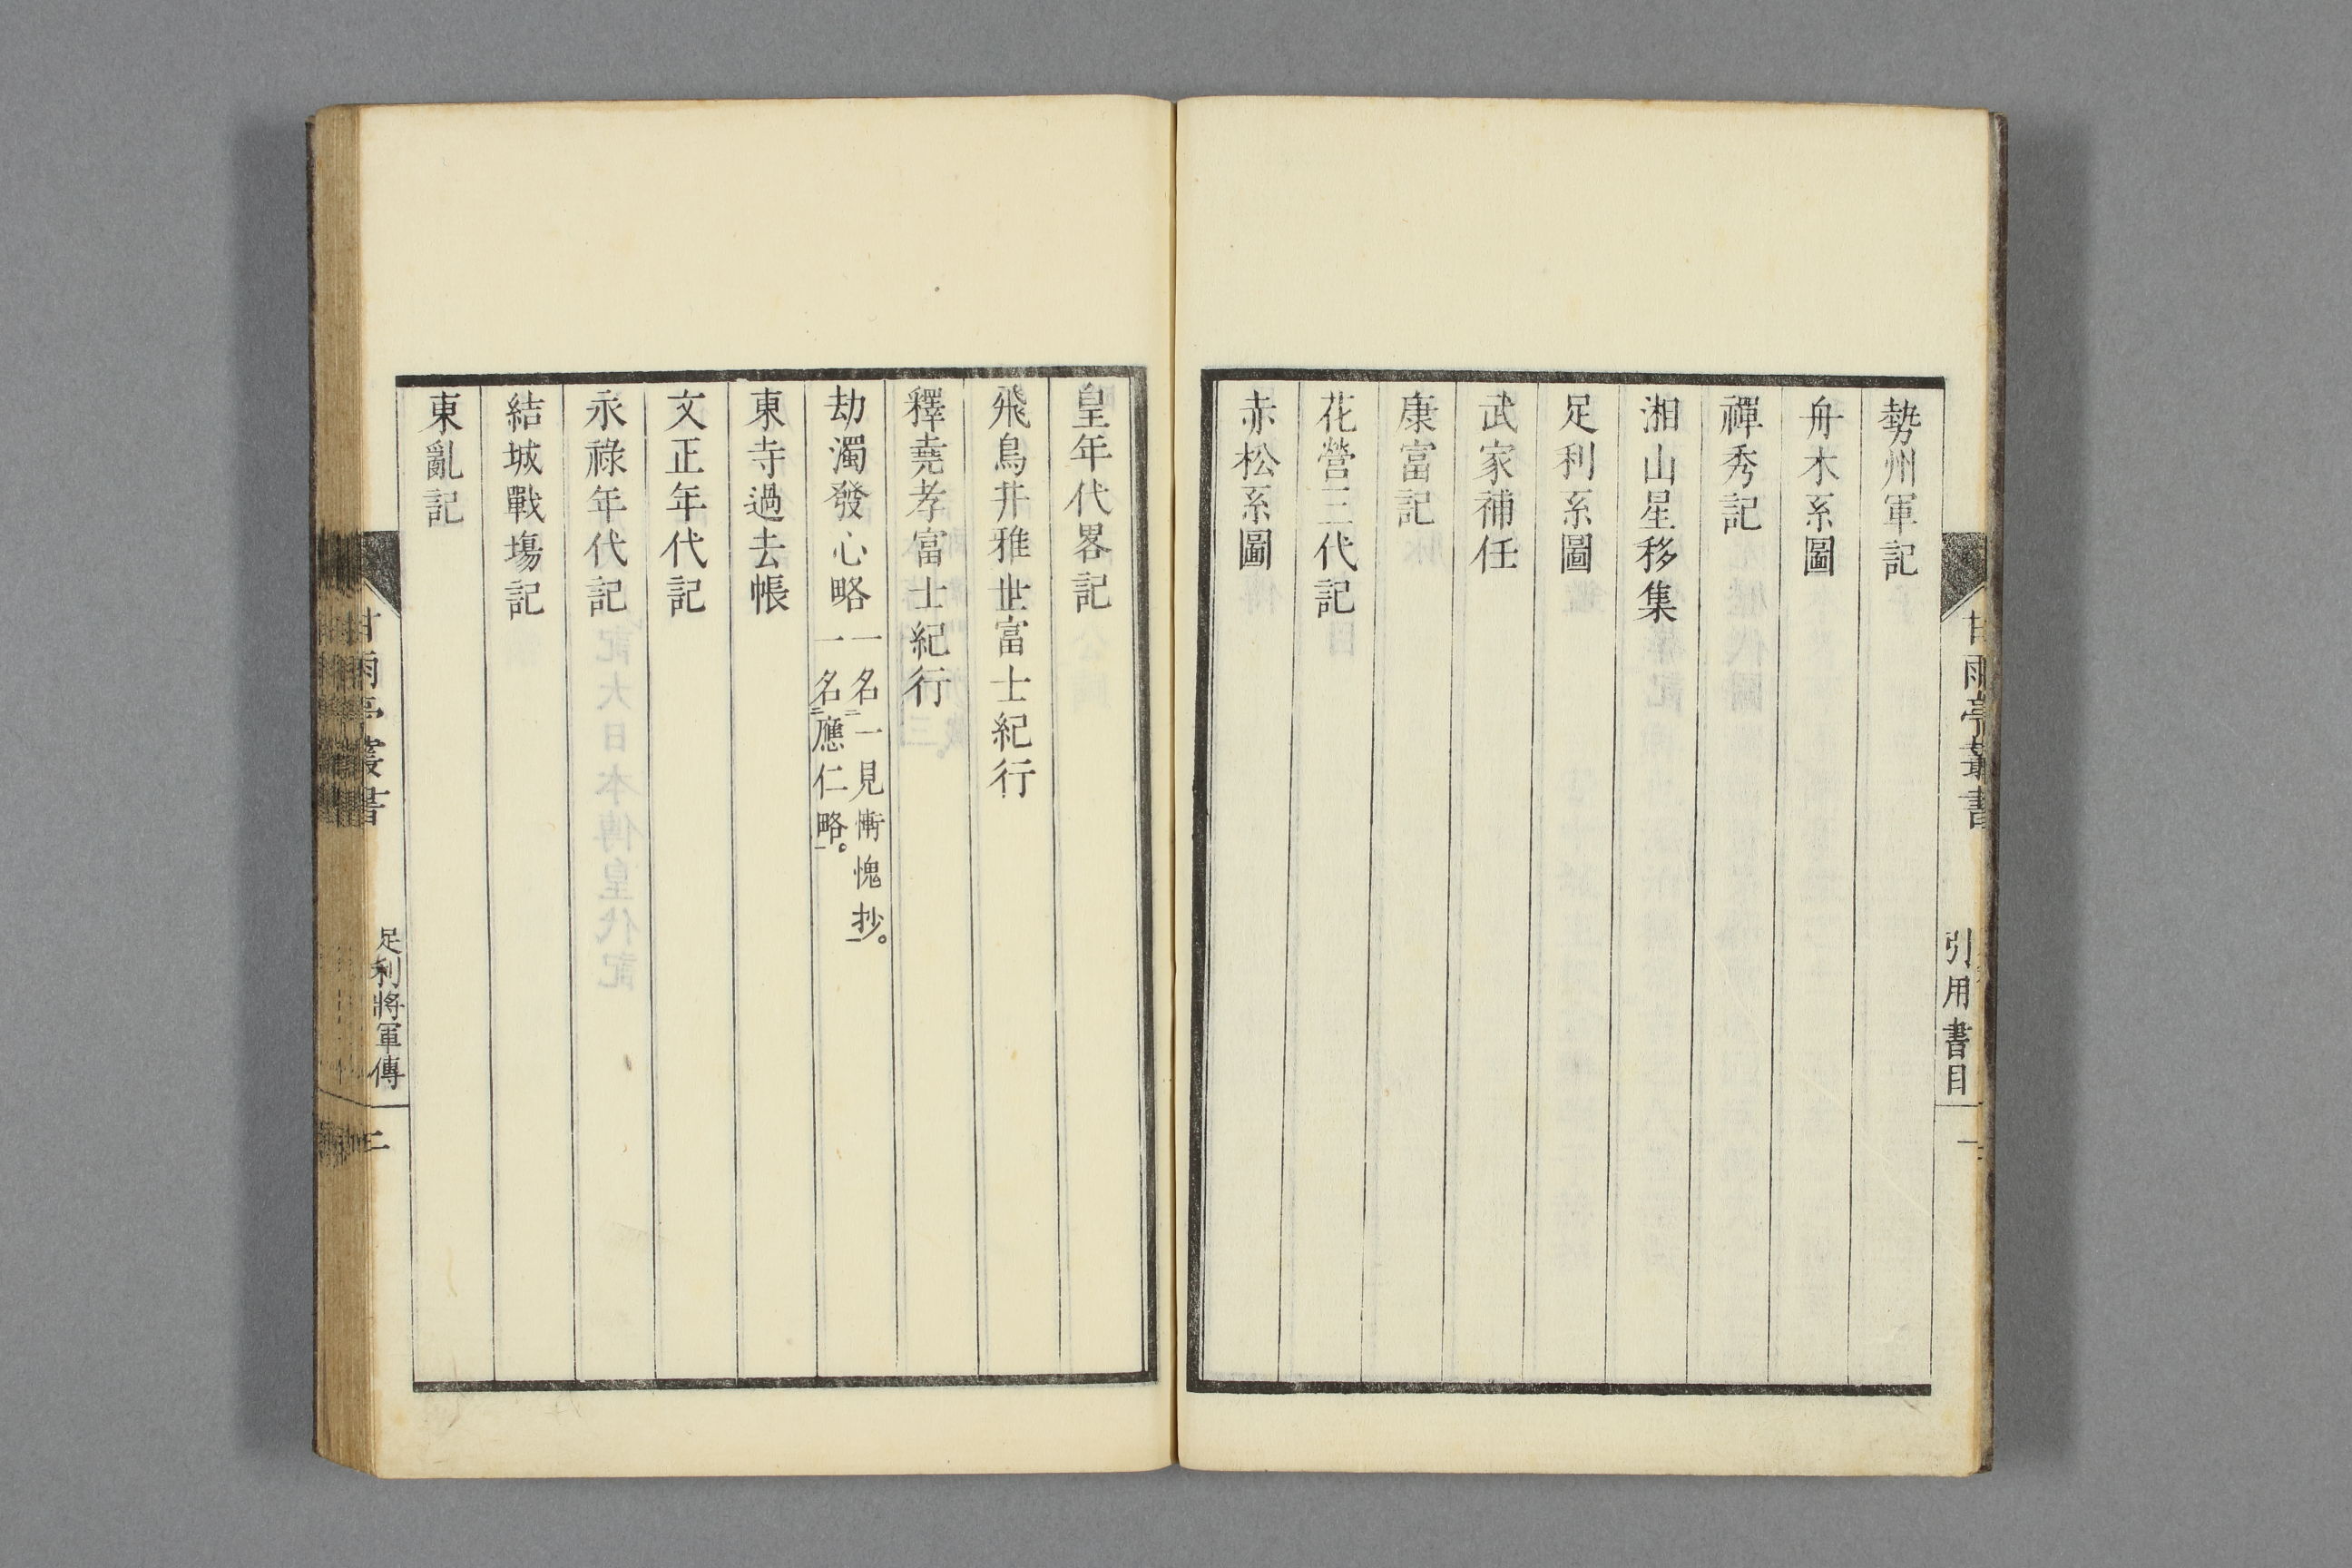 勢州軍記
舟木系圖
禪秀記
湘山星移集
足利系圖
武家補任
康富記
花營三代記
赤松系圖
甘雨亭叢書
引用書目
皇年代畧記
飛鳥井雅世富士紀行
釋堯孝富士紀行
劫濁發心略 一名一見慚愧抄。
一名應仁略。
東寺過去帳
文正年代記
永祿年代記
結城戰塲記
東亂記
甘雨亭叢書
足利將軍傳
二